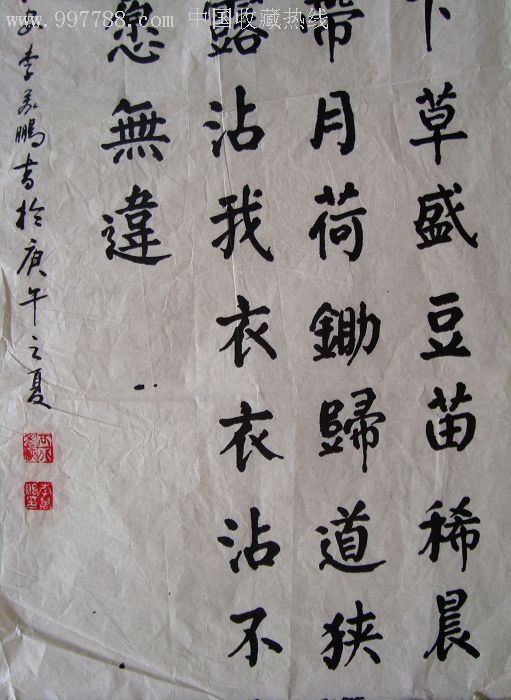 www.997788.com 中国收藏热线
下草盛豆苗稀晨
帶月荷鋤歸道狹
露沾我衣衣沾不
無違
李 鵬书於庚午之夏